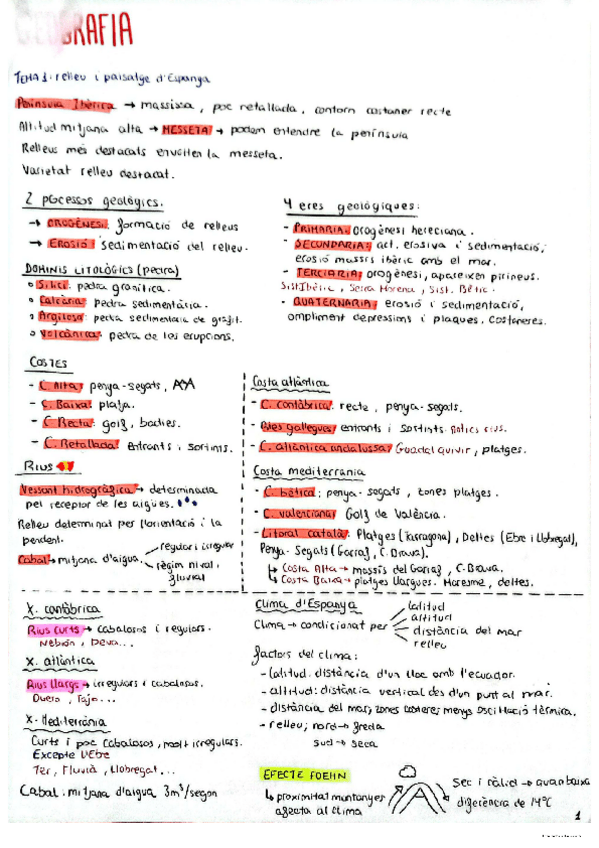 GEOGRAFIA
TEMA 1: relleu i paisatge d'Espanya
Península Ibèrica → massissa, poc retallada, contorn costaner recte
Altitud mitjana alta → MESSETA → podem entendre la península
Relleus més destacats envolten la messeta.
Varietat relleu destacat.
2 processos geològics.
→ OROGÈNESI: formació de relleus
→ EROSIÓ i sedimentació del relleu.
DOMINIS LITOLÒGICS (pedra)
Silici: pedra granítica.
Calcària: pedra sedimentària.
Argilosa: pedra sedimentaria de grafit.
Volcànica: pedra de les erupcions.
4 eres geològiques:
- PRIMARIA: orogènesi herciana.
- SECUNDARIA: act. erosiva i sedimentació,
erosió massís ibèric amb el mar.
- TERCIARIA: orogènesi, apareixen pirineus.
Sist Ibèric, Serra Morena, Sist. Bètic.
- QUATERNARIA: erosió i sedimentació,
ompliment depressions i plaques. Costaneres.
COSTES
- C. Alta: penya-segats,
- C. Baixa: platja.
- C. Recta: golf, badies.
- C. Retallada: entrants i sortints.
Costa atlàntica
- C. cantàbrica: recte, penya-segats.
- Ries gallegues: entrants i sortints. rius.
- C. atlàntica andalussa: Guadalquivir, platges.
Costa mediterrania
- C. bètica: penya-segats, zones platges.
- C. valenciana: Golf de València.
- Litoral català: Platges (Tarragona), Deltes (Ebre i Llobregat),
Penya-Segats (Garraf, C. Brava).
↳ Costa Alta → massís del Garraf, C. Brava.
↳ Costa Baixa → platges llargues. Maresme, deltes.
RIUS
Vessant hidrogràfica → determinada
pel receptor de les aigües.
Relleu determinat per l'orientació i la
pendent.
Cabal → mitjana d'aigua.
regular i irregular
règim nival,
fluvial
X. cantàbrica
Rius curts → cabalosos i regulars.
Nebión, Deva...
X. atlàntica
Rius llargs → irregulars i cabalosos.
Duero, Tajo...
X. Mediterrània
Curts i poc cabalosos, molt irregulars.
Excepte l'Ebre
Ter, Fluvià, Llobregat...
Cabal: mitjana d'aigua 3m³/segon
Clima d'Espanya
Clima → condicionat per
latitud
altitud
distància del mar
relleu
factors del clima:
- latitud: distància d'un lloc amb l'ecuador.
- altitud: distància vertical des d'un punt al mar.
- distància del mar: zones costeres menys oscil·lació tèrmica.
- relleu: nord → freda
sud → seca
EFECTE FOEHN
↳ proximitat muntanyes
afecta al clima
Sec i càlid → quan baixa
diferència de 14°C
1